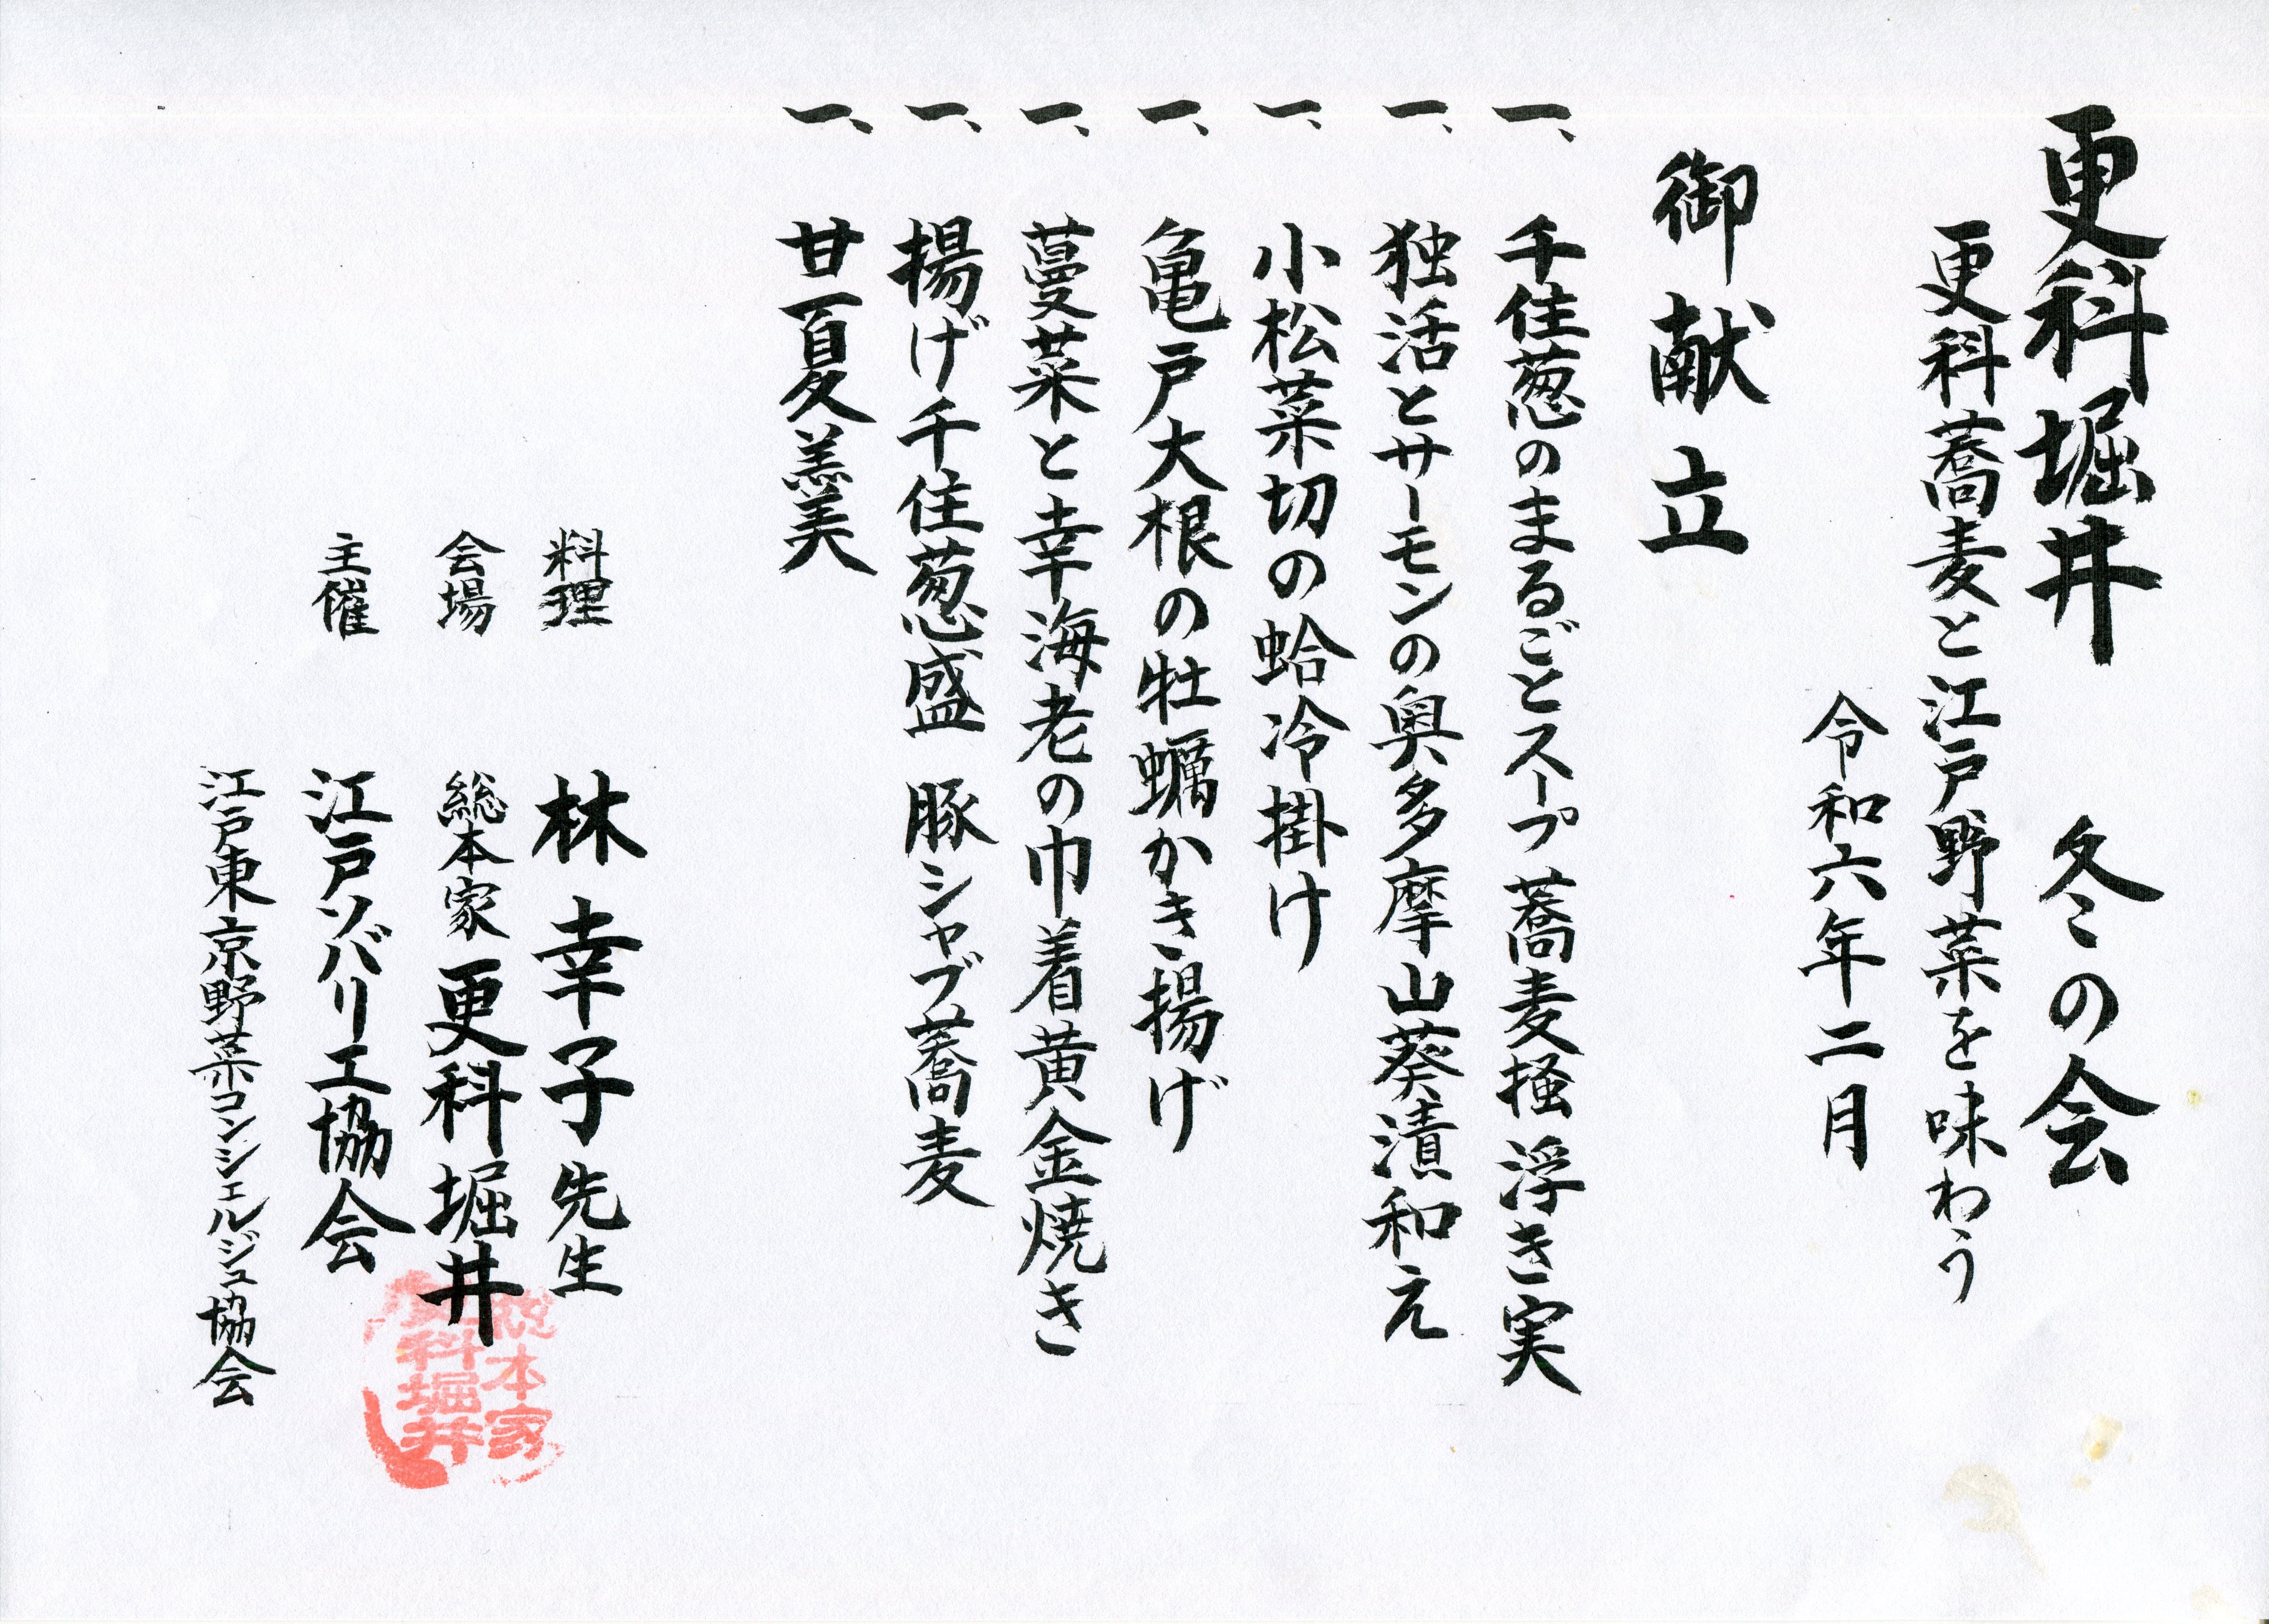 更科堀井 冬の会
更科蕎麦と江戸野菜を味わう
令和六年二月
御献立
一、千住葱のまるごとスープ 蕎麦掻 浮き実
一、独活とサーモンの奥多摩山葵漬和え
一、小松菜切の蛤冷掛け
一、亀戸大根の牡蠣かき揚げ
一、蔓菜と幸海老の巾着黄金焼き
一、揚げ千住葱盛 豚シャブ蕎麦
一、甘夏羹
料理 林幸子先生
会場 総本家 更科堀井
主催 江戸ソバリエ協会
江戸東京野菜コンシェルジュ協会
総本家
更科堀井